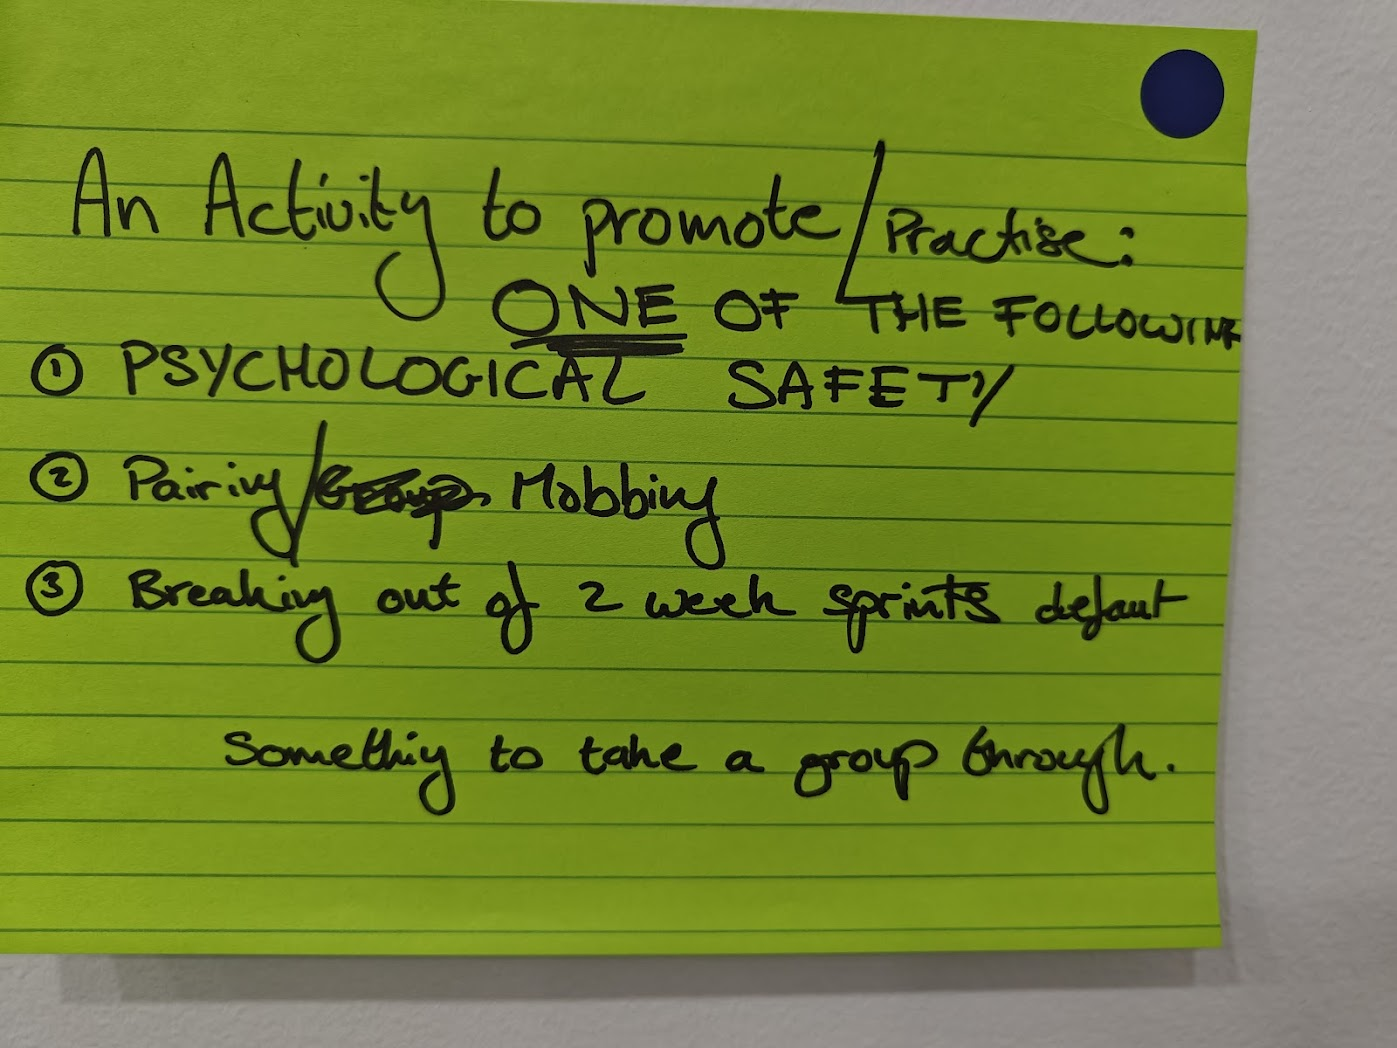 An Activity to promote/Practise:
ONE OF THE FOLLOWING
① PSYCHOLOGICAL SAFETY
② Pairing/ Mobbing
③ Breaking out of 2 week sprints defaut
Something to take a group through.